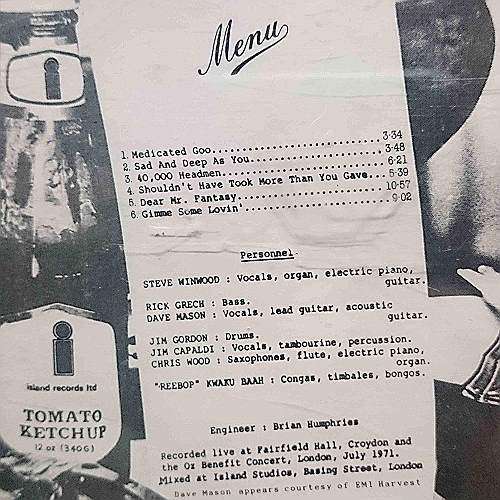 Menu
1. Medicated Goo.......................... 3·34
2. Sad And Deep As You.................... 3·48
3. 40,000 Headmen......................... 6·21
4. Shouldn't Have Took More Than You Gave.. 5·39
5. Dear Mr. Fantasy....................... 10·57
6. Gimme Some Lovin'...................... 9·02
Personnel·
STEVE WINWOOD : Vocals, organ, electric piano,
guitar.
RICK GRECH : Bass.
DAVE MASON : Vocals, lead guitar, acoustic
guitar.
JIM GORDON : Drums.
JIM CAPALDI : Vocals, tambourine, percussion.
CHRIS WOOD : Saxophones, flute, electric piano,
organ.
"REEBOP" KWAKU BAAH : Congas, timbales, bongos.
Engineer : Brian Humphries
Recorded live at Fairfield Hall, Croydon and
the Oz Benefit Concert, London, July 1971.
Mixed at Island Studios, Basing Street, London
Dave Mason appears courtesy of EMI Harvest
island records ltd
TOMATO
KETCHUP
12 oz (340G)